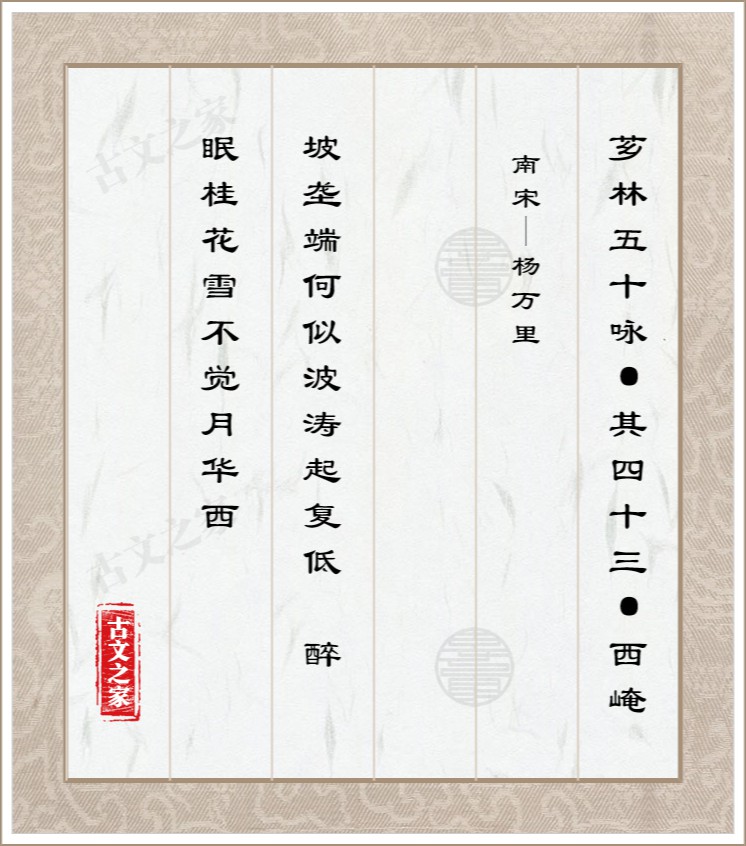 芗林五十咏●其四十三●西崦
南宋—杨万里
坡垄端何似波涛起复低 醉
眠桂花雪不觉月华西
古文之家
古文之家
古文之家